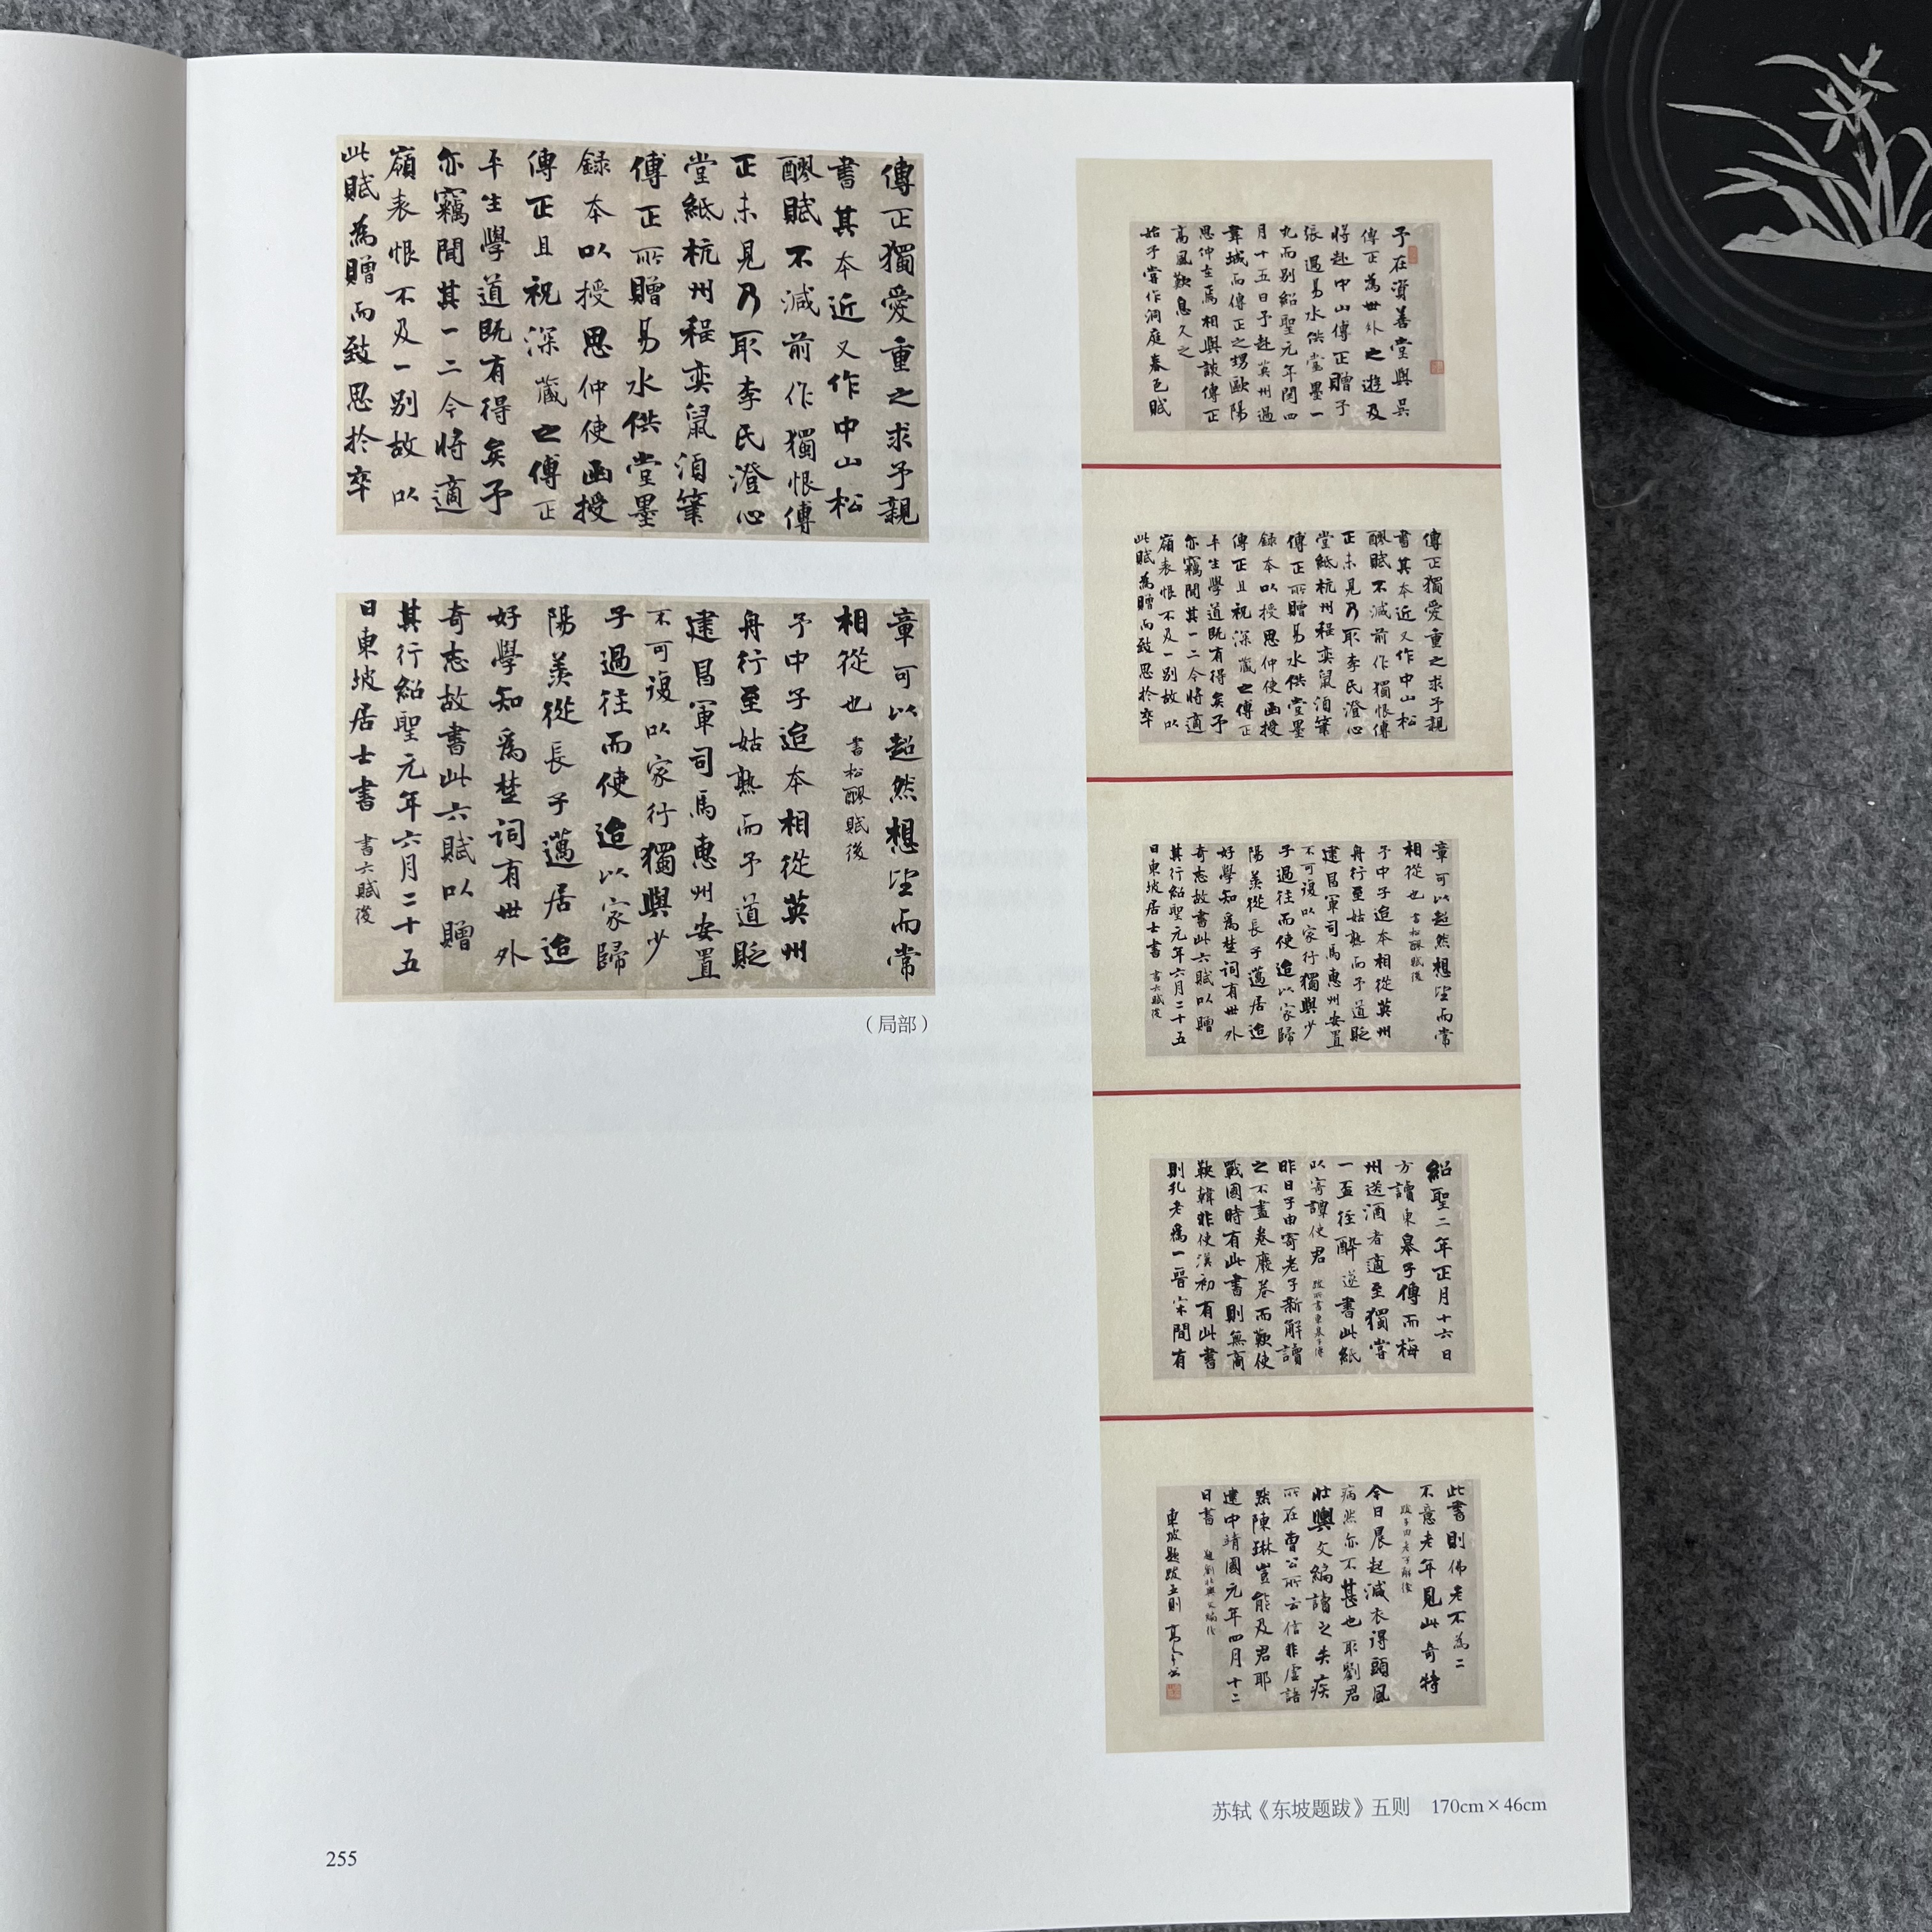 傳正獨愛重之求予親
書其本近又作中山松
醪賦不減前作獨恨傳
正未見乃取李氏澄心
堂紙杭州程奕鼠須筆
傳正所贈易水供堂墨
録本以授思仲使面授
傳正且祝深藏之傳正
平生學道既有得矣予
亦竊聞其一二今將適
嶺表恨不及一別故以
此賦為贈而致思於卒
章可以超然想望而常
相從也 書松醪賦後
予中子迨本相從英州
舟行至姑熟而予道貶
建昌軍司馬惠州安置
不可復以家行獨與少
子過往而使迨以家歸
陽羡從長子邁居迨
好學知為楚詞有世外
奇志故書此六賦以贈
其行紹聖元年六月二十五
日東坡居士書 書六賦後
（局部）
予在資善堂與吴
傳正為世外之遊及
將赴中山傳正贈予
張遇易水供堂墨一
丸而別紹聖元年閏四
月十五日予赴英州過
韋城而傳正之甥歐陽
思仲在焉相與談傳正
高風歎息久之
始予嘗作洞庭春色賦
傳正獨愛重之求予親
書其本近又作中山松
醪賦不減前作獨恨傳
正未見乃取李氏澄心
堂紙杭州程奕鼠須筆
傳正所贈易水供堂墨
録本以授思仲使面授
傳正且祝深藏之傳正
平生學道既有得矣予
亦竊聞其一二今將適
嶺表恨不及一別故以
此賦為贈而致思於卒
章可以超然想望而常
相從也 書松醪賦後
予中子迨本相從英州
舟行至姑熟而予道貶
建昌軍司馬惠州安置
不可復以家行獨與少
子過往而使迨以家歸
陽羡從長子邁居迨
好學知為楚詞有世外
奇志故書此六賦以贈
其行紹聖元年六月二十五
日東坡居士書 書六賦後
紹聖二年正月十六日
方讀東皋子傳而梅
州送酒者適至獨嘗
一盃徑醉遂書此紙
以寄譚使君 跋所書東皋子傳
昨日子由寄老子新解讀
之不盡卷廢卷而歎使
戰國時有此書則無商
鞅韓非使漢初有此書
則孔老為一晉宋間有
此書則佛老不為二
不意老年見此奇特
跋子由老子解後
今日晨起減衣得頭風
病然亦不甚也取劉君
壯輿文編讀之失疾
所在曹公所云信非虛語
然陳琳豈能及君耶
建中靖國元年四月十二
日書 題劉壯輿文編後
東坡題跋五則
苏轼《东坡题跋》五则 170cm×46cm
255